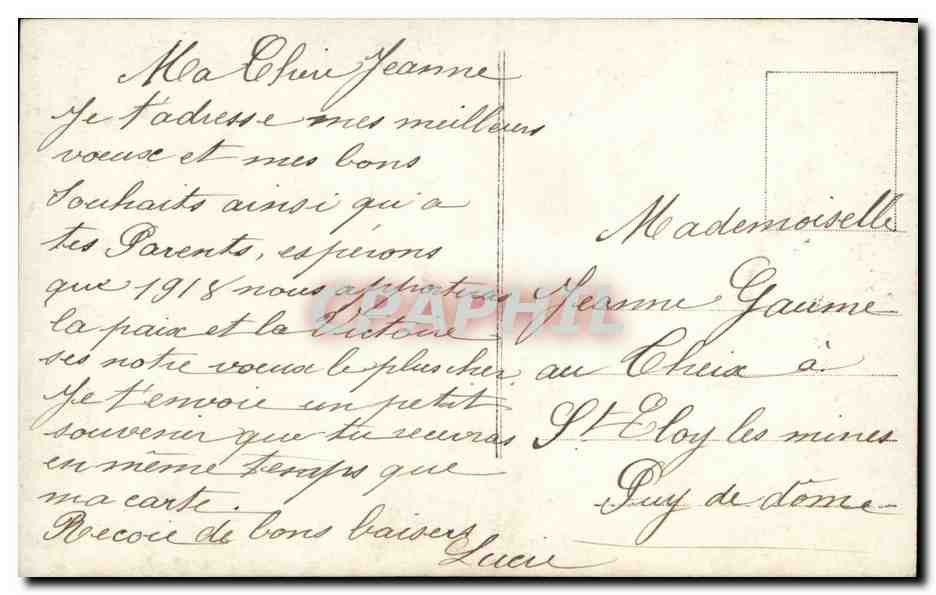 Ma Chere Jeanne
Je t'adresse mes meilleurs
voeux et mes bons
Souhaits ainsi qu'a
tes Parents, espérons
que 1918 nous apportera
la paix et la Victoire
ses notre voeux le plus cher.
Je t'envoie un petit
souvenir que tu recevras
en même temps que
ma carte.
Recoie de bons baisers
Lucie
Mademoiselle
Jeanne Gaume
au Cheix à
St Eloy les mines
Puy de dôme
CPAPHIL